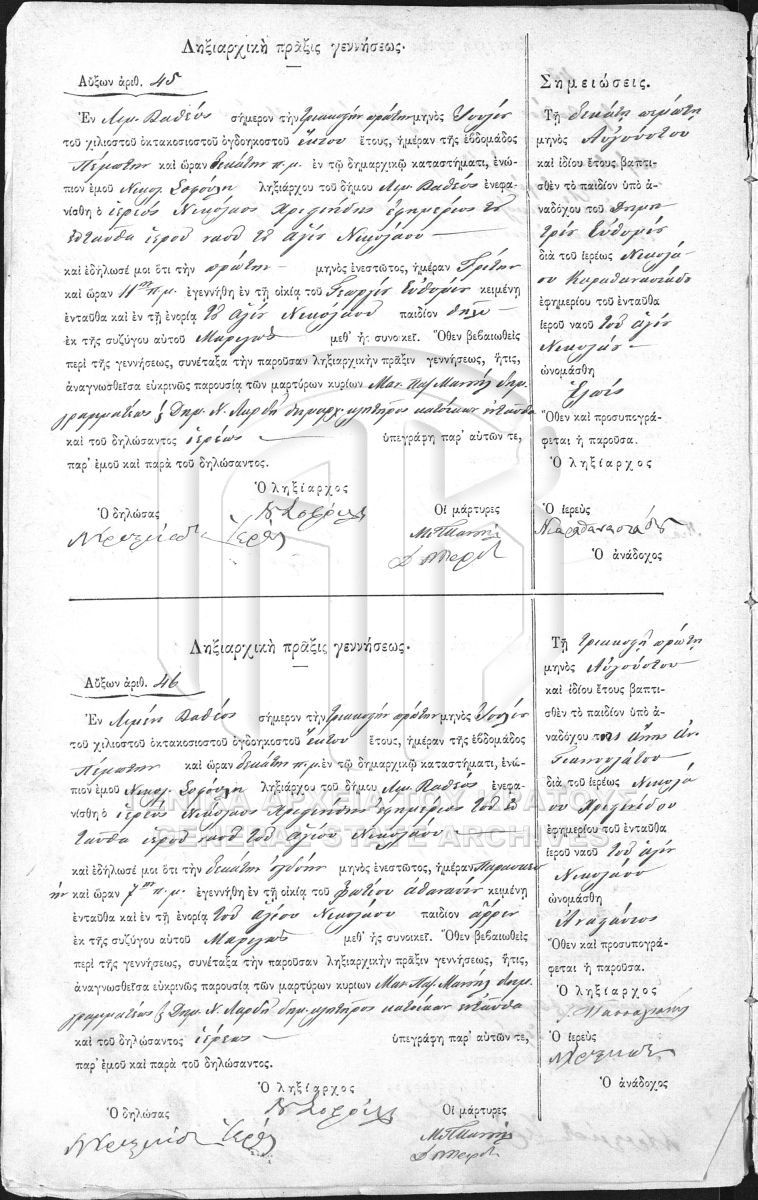 Ληξιαρχικὴ πρᾶξις γεννήσεως.
Αὔξων ἀριθ. 45
Ἐν Λιμ. Βαθέος σήμερον τὴν τριακοστὴν πρώτην μηνὸς Ἰουλίου
τοῦ χιλιοστοῦ ὀκτακοσιοστοῦ ὀγδοηκοστοῦ ἕκτου ἔτους, ἡμέραν τῆς ἑβδομάδος
Πέμπτην καὶ ὥραν δεκάτην π.μ. ἐν τῷ δημαρχικῷ καταστήματι, ἐνώ-
πιον ἐμοῦ Νικολ. Σοφούλη ληξιάρχου τοῦ δήμου Λιμ. Βαθέος ἐνεφα-
νίσθη ὁ ἱερεὺς Νικόλαος ἐφημέριος τοῦ
ἐνταῦθα ἱεροῦ ναοῦ τοῦ ἁγίου Νικολάου
καὶ ἐδήλωσέ μοι ὅτι τὴν πρώτην μηνὸς ἐνεστῶτος, ἡμέραν Τρίτην
καὶ ὥραν 11ην π.μ. ἐγεννήθη ἐν τῇ οἰκίᾳ τοῦ Γεωργίου Εὐθυμίου κειμένῃ
ἐνταῦθα καὶ ἐν τῇ ἐνορίᾳ τοῦ ἁγίου Νικολάου παιδίον θῆλυ
ἐκ τῆς συζύγου αὐτοῦ Μαριγῶς μεθ' ἧς συνοικεῖ. Ὅθεν βεβαιωθεὶς
περὶ τῆς γεννήσεως, συνέταξα τὴν παροῦσαν ληξιαρχικὴν πρᾶξιν γεννήσεως, ἥτις,
ἀναγνωσθεῖσα εὐκρινῶς παρουσίᾳ τῶν μαρτύρων κυρίων Μαν. Παπ Μανώλη δημ.
γραμματέως & Δημ. Ν. δημαρχ. κλητῆρος κατοίκων ἐνταῦθα
καὶ τοῦ δηλώσαντος ἱερέως ὑπεγράφη παρ' αὐτῶν τε,
παρ' ἐμοῦ καὶ παρὰ τοῦ δηλώσαντος.
Ὁ ληξίαρχος
Ν Σοφούλης
Ὁ δηλώσας
Οἱ μάρτυρες
ἱερεὺς
Σημειώσεις.
Τῇ δεκάτῃ πέμπτῃ
μηνὸς Αὐγούστου
καὶ ἰδίου ἔτους βαπτι-
σθὲν τὸ παιδίον ὑπὸ ἀ-
ναδόχου τοῦ Δημη
τρίου Εὐθυμίου
διὰ τοῦ ἱερέως Νικολά-
ου Καραθανασιάδου
ἐφημερίου τοῦ ἐνταῦθα
ἱεροῦ ναοῦ τοῦ ἁγίου
Νικολάου
ὠνομάσθη
Ἐλπίς
Ὅθεν καὶ προσυπογρά-
φεται ἡ παροῦσα.
Ὁ ληξίαρχος
Ὁ ἱερεὺς
Ν Καραθανασιάδης
Ὁ ἀνάδοχος
Ληξιαρχικὴ πρᾶξις γεννήσεως.
Αὔξων ἀριθ. 46
Ἐν Λιμένι Βαθέος σήμερον τὴν τριακοστὴν πρώτην μηνὸς Ἰουλίου
τοῦ χιλιοστοῦ ὀκτακοσιοστοῦ ὀγδοηκοστοῦ ἕκτου ἔτους, ἡμέραν τῆς ἑβδομάδος
Πέμπτην καὶ ὥραν δεκάτην π.μ. ἐν τῷ δημαρχικῷ καταστήματι, ἐνώ-
πιον ἐμοῦ Νικολ. Σοφούλη ληξιάρχου τοῦ δήμου Λιμ. Βαθέος ἐνεφα-
νίσθη ὁ ἱερεὺς Νικόλαος ἐφημέριος τοῦ ἐν
ταῦθα ἱεροῦ ναοῦ τοῦ ἁγίου Νικολάου
καὶ ἐδήλωσέ μοι ὅτι τὴν δεκάτην ὀγδόην μηνὸς ἐνεστῶτος, ἡμέραν Παρασκευ
ὴν καὶ ὥραν 7ην π.μ. ἐγεννήθη ἐν τῇ οἰκίᾳ τοῦ Φωτίου Ἀθανασίου κειμένῃ
ἐνταῦθα καὶ ἐν τῇ ἐνορίᾳ τοῦ ἁγίου Νικολάου παιδίον ἄρρεν
ἐκ τῆς συζύγου αὐτοῦ Μαριγῶς μεθ' ἧς συνοικεῖ. Ὅθεν βεβαιωθεὶς
περὶ τῆς γεννήσεως, συνέταξα τὴν παροῦσαν ληξιαρχικὴν πρᾶξιν γεννήσεως, ἥτις,
ἀναγνωσθεῖσα εὐκρινῶς παρουσίᾳ τῶν μαρτύρων κυρίων Μαν. Παπ Μανώλη δημ.
γραμματέως & Δημ. Ν. δημ. κλητῆρος κατοίκων ἐνταῦθα
καὶ τοῦ δηλώσαντος ἱερέως ὑπεγράφη παρ' αὐτῶν τε,
παρ' ἐμοῦ καὶ παρὰ τοῦ δηλώσαντος.
Ὁ ληξίαρχος
Ν Σοφούλης
Ὁ δηλώσας
Οἱ μάρτυρες
ἱερεὺς
Τῇ τριακοστῇ πρώτῃ
μηνὸς Αὐγούστου
καὶ ἰδίου ἔτους βαπτι-
σθὲν τὸ παιδίον ὑπὸ ἀ-
ναδόχου
διὰ τοῦ ἱερέως Νικολά
ου
ἐφημερίου τοῦ ἐνταῦθα
ἱεροῦ ναοῦ τοῦ ἁγίου
Νικολάου
ὠνομάσθη
Ὅθεν καὶ προσυπογρά-
φεται ἡ παροῦσα.
Ὁ ληξίαρχος
Ὁ ἱερεὺς
Ὁ ἀνάδοχος
ΓΕΝΙΚΑ ΑΡΧΕΙΑ ΤΟΥ ΚΡΑΤΟΥΣ
GENERAL STATE ARCHIVES